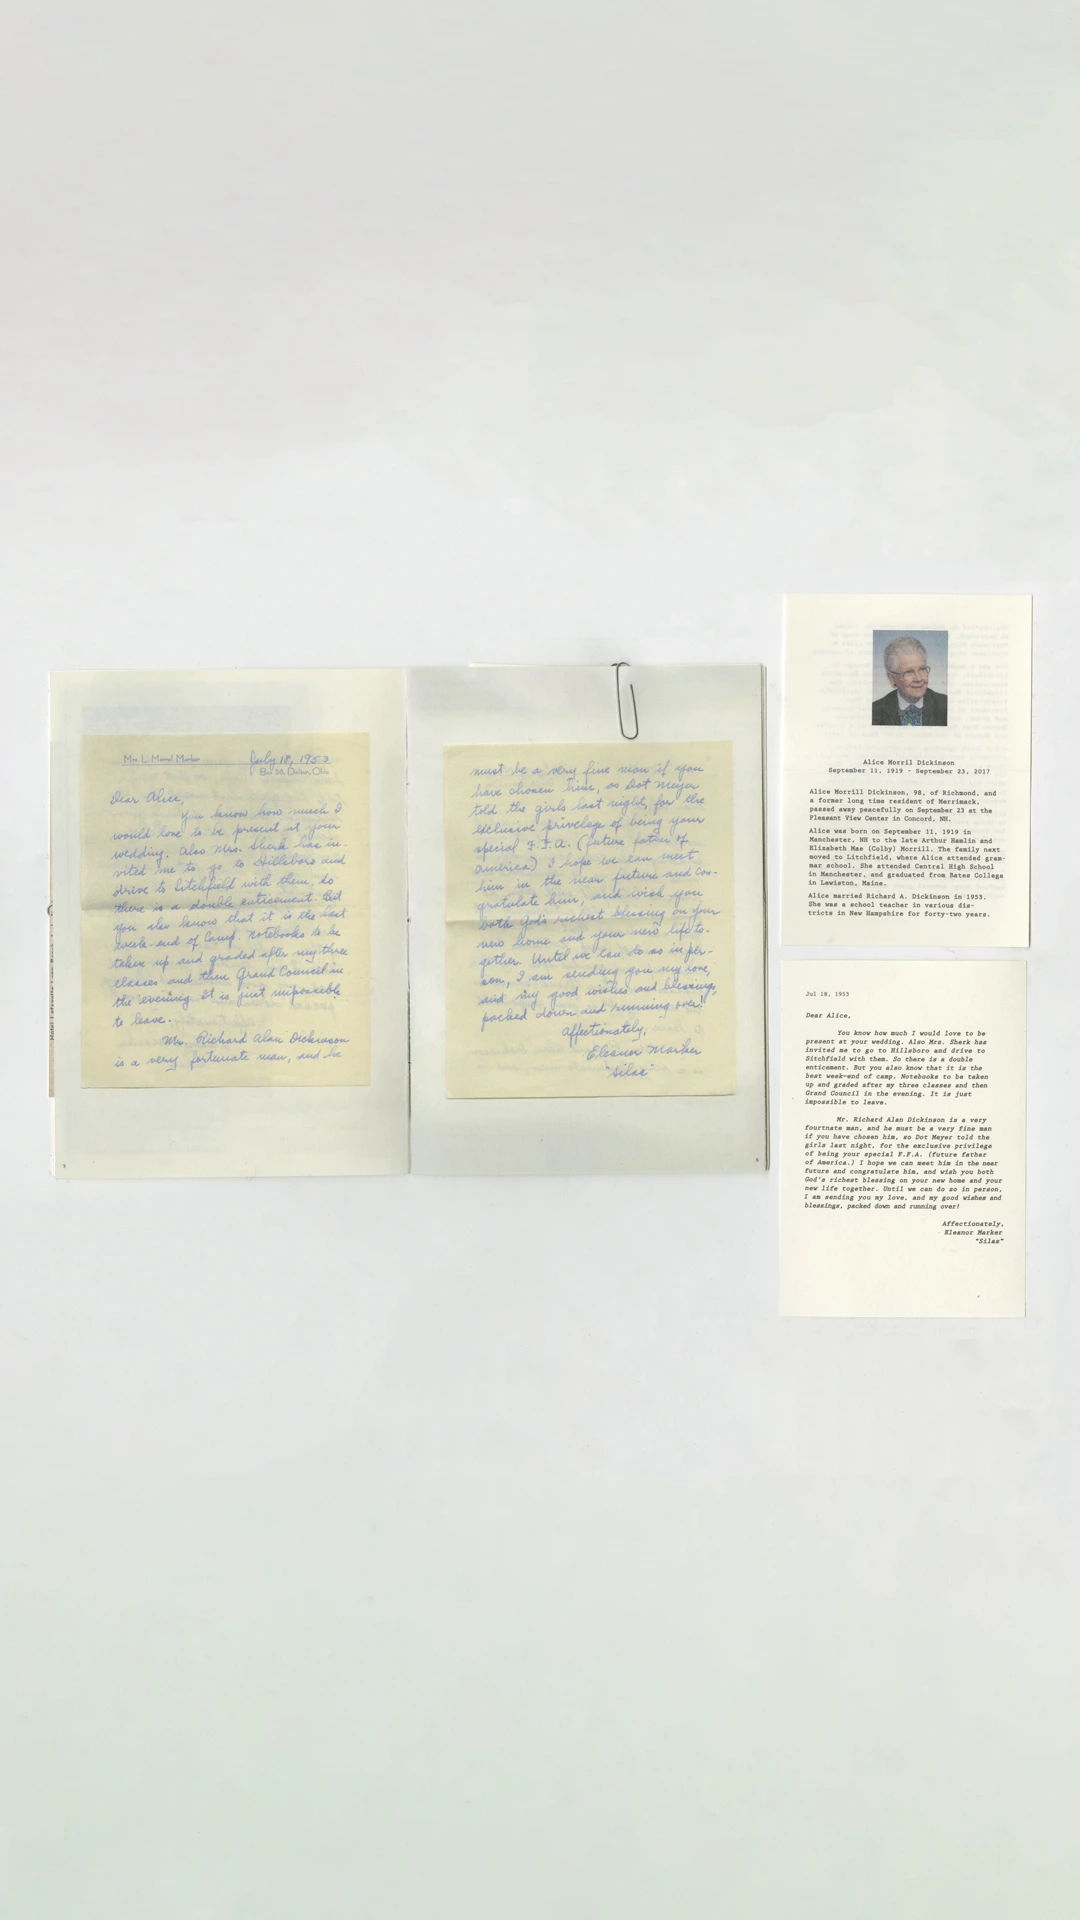 Mrs. L. Merrel Marker
July 18, 1953
Box 58, Dalton, Ohio
Dear Alice,
You know how much I
would love to be present at your
wedding. Also Mrs. Sherk has in-
vited me to go to Hillsboro and
drive to Litchfield with them, so
there is a double enticement. But
you also know that it is the last
week-end of Camp. Notebooks to be
taken up and graded after my three
classes and then Grand Council in
the evening. It is just impossible
to leave.
Mr. Richard Alan Dickinson
is a very fortunate man, and he
must be a very fine man if you
have chosen him, as Dot Meyer
told the girls last night, for the
exclusive privelege of being your
special F.F.A. (future father of
America) I hope we can meet
him in the near future and con-
gratulate him, and wish you
both God's richest blessing on your
new home and your new life to-
gether. Until we can do so in per-
son, I am sending you my love,
and my good wishes and blessings,
packed down and running over!
Affectionately,
Eleanor Marker
"Silas"
Alice Morril Dickinson
September 11, 1919 - September 23, 2017
Alice Morrill Dickinson, 98, of Richmond, and
a former long time resident of Merrimack,
passed away peacefully on September 23 at the
Pleasant View Center in Concord, NH.
Alice was born on September 11, 1919 in
Manchester, NH to the late Arthur Hamlin and
Elizabeth Mae (Colby) Morrill. The family next
moved to Litchfield, where Alice attended gram-
mar school. She attended Central High School
in Manchester, and graduated from Bates College
in Lewiston, Maine.
Alice married Richard A. Dickinson in 1953.
She was a school teacher in various dis-
tricts in New Hampshire for forty-two years.
Jul 18, 1953
Dear Alice,
You know how much I would love to be
present at your wedding. Also Mrs. Sherk has
invited me to go to Hillsboro and drive to
Sitchfield with them. So there is a double
enticement. But you also know that it is the
best week-end of camp. Notebooks to be taken
up and graded after my three classes and then
Grand Council in the evening. It is just
impossible to leave.
Mr. Richard Alan Dickinson is a very
fourtnate man, and he must be a very fine man
if you have chosen him, so Dot Meyer told the
girls last night, for the exclusive privilege
of being your special F.F.A. (future father
of America.) I hope we can meet him in the near
future and congratulate him, and wish you both
God's richest blessing on your new home and your
new life together. Until we can do so in person,
I am sending you my love, and my good wishes and
blessings, packed down and running over!
Affectionately,
Eleanor Marker
"Silas"